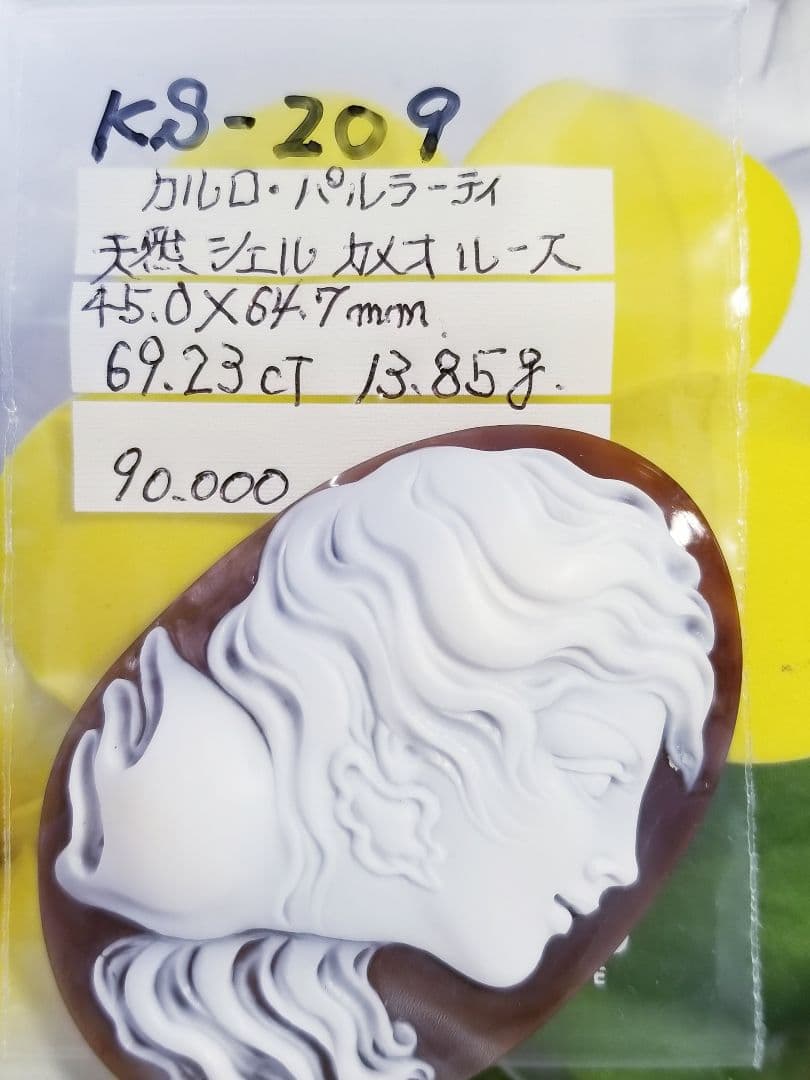 KS-209
カルロ・パルラーティ
天然 シェル カメオ ルース
45.0×64.7mm
69.23cT 13.85g.
90.000